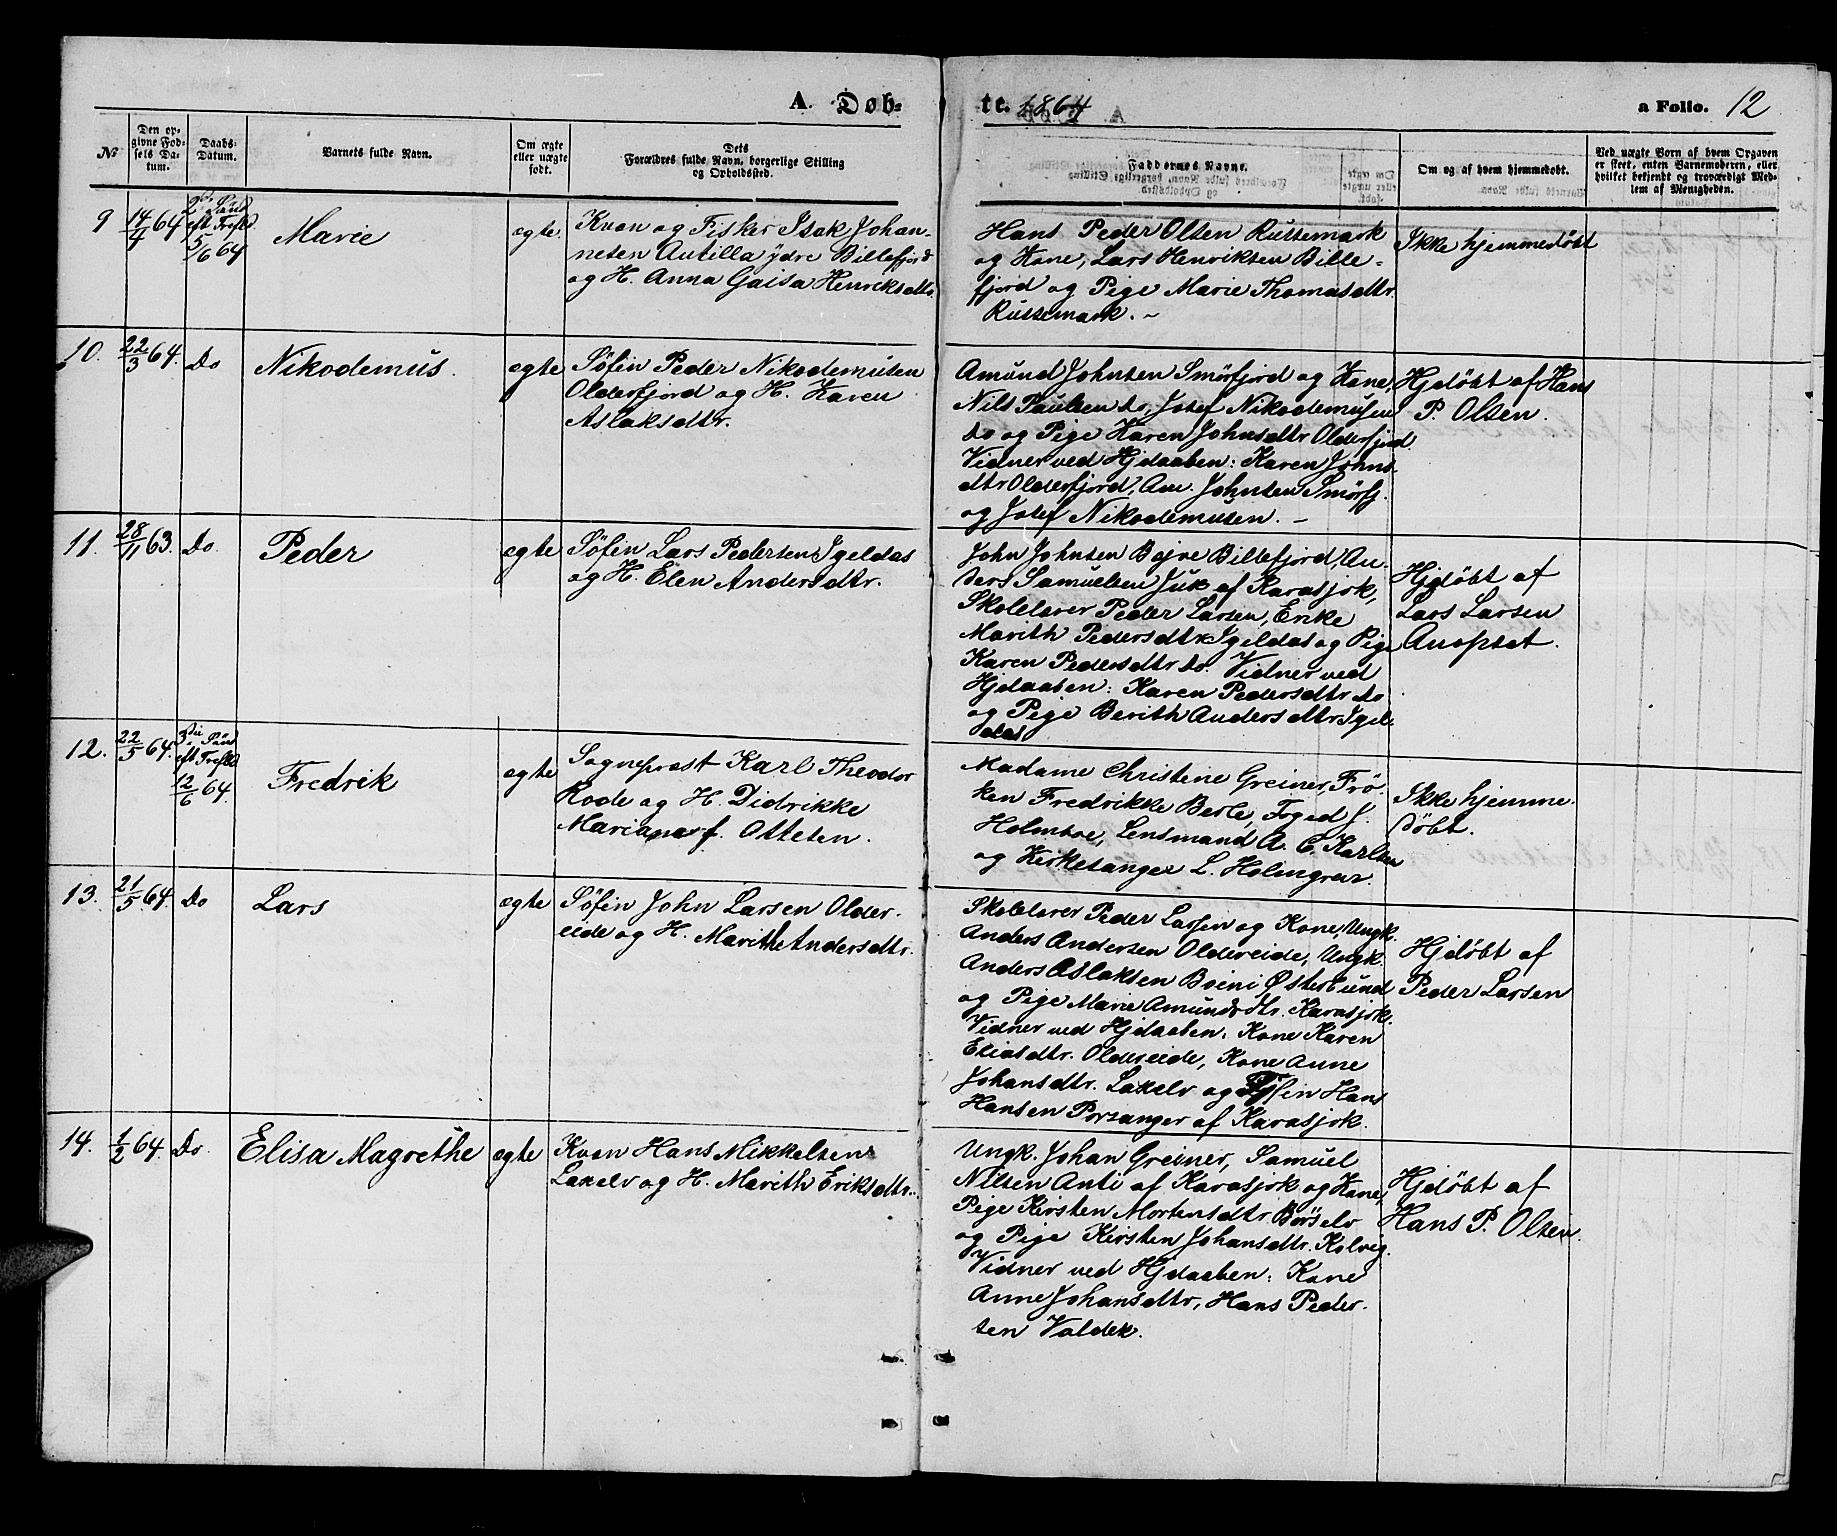 A. Døb-
te. 1864
a Folio. 12
№
Den op-
givne Fød-
sels Da-
tum.
Daabs-
Datum.
Barnets fulde Navn.
Om ægte
eller uægte
født.
Dets
Forældres fulde Navn, borgerlige Stilling
og Opholdssted.
Faddernes Navne.
Om og af hvem hjemmedøbt.
Ved uægte Børn af hvem Opgaven
er skeet, enten Barnemoderen, eller
hvilket bekjendt og troværdigt Med-
lem af Menigheden.
9
14/4 64
5/6 64
Marie
ægte
Kvæn og Fisker Isak Johan-
nesen Autilla ydre Billefjord
og H. Anna Gaisa Henriksdtr.
Hans Peder Olsen Russemark
og Kone, Lars Henriksen Bille-
fjord og Pige Marie Thomasdtr.
Russemark. ~
Ikke hjemmedøbt
10.
22/3 64.
Do
Nikodemus.
ægte
Søfin Peder Nikodemusen
Olderfjord og H. Karen
Aslaksdtr.
Amund Johnsen Smörfjord og Kone,
Nils Paulsen do, Josef Nikodemusen
do og Pige Karen Johnsdtr Olderfjord.
Vidner ved Hjdaaben: Karen Johns-
dtr Olderfjord, Am. Johnsen Smörfj.
og Josef Nikodemusen. –
Hjdöbt af Hans
P. Olsen.
11.
28/11 63.
Do.
Peder
ægte
Søfin Lars Pedersen Igeldas
og H. Elen Andersdtr.
John Johnsen Bojne Billefjord, An-
ders Samuelsen Juk af Karasjok,
Skolelærer Peder Larsen, Enke
Marith Pedersdtr Igeldas og Pige
Karen Pedersdtr do. Vidner ved
Hjdaaben: Karen Pedersdtr do
og Pige Berith Andersdtr Igel-
das
Hjdöbt af
Lars Larsen
Anopset.
12.
22/5 64.
3die Sønd
eft Trefld
12/6 64.
Fredrik
ægte
Sogneprest Karl Theodor
Rode og H. Didrikke
Maria f. Ottesen.
Madame Christine Greiner, Frö-
ken Fredrikke Berle, Foged J.
Holmboe, Lensmand A. C. Karlsen
og Kirkesanger L. Holmgren.
Ikke hjemme-
döbt.
13.
21/5 64.
Do
Lars
ægte
Søfin John Larsen Older-
eide og H. Marithe Andersdtr.
Skolelærer Peder Larsen og Kone, Ungk.
Anders Andersen Oldereide, Ungk.
Anders Aslaksen Boini Østerbund
og Pige Marie Amundsdtr. Karasjok.
Vidner ved Hjdaaben: Kone Karen
Eliasdtr. Oldereide, Kone Anne
Johansdtr. Lakelv og Fjfin Hans
Hansen Porsanger af Karasjok.
Hjdöbt af
Peder Larsen
14.
1/2 64.
Do.
Elisa Magrethe
ægte
Kvæn Hans Mikkelsen
Lakelv og H. Marith Eriksdtr.
Ungk. Johan Greiner, Samuel
Nilsen Anti af Karasjok og Kone,
Pige Kirsten Mortensdtr Börselv
og Pige Kirsten Johansdtr. Kolvig.
Vidner ved Hjdaaben: Kone
Anne Johansdtr, Hans Peder-
sen Valdek.
Hjdöbt af
Hans P. Olsen.